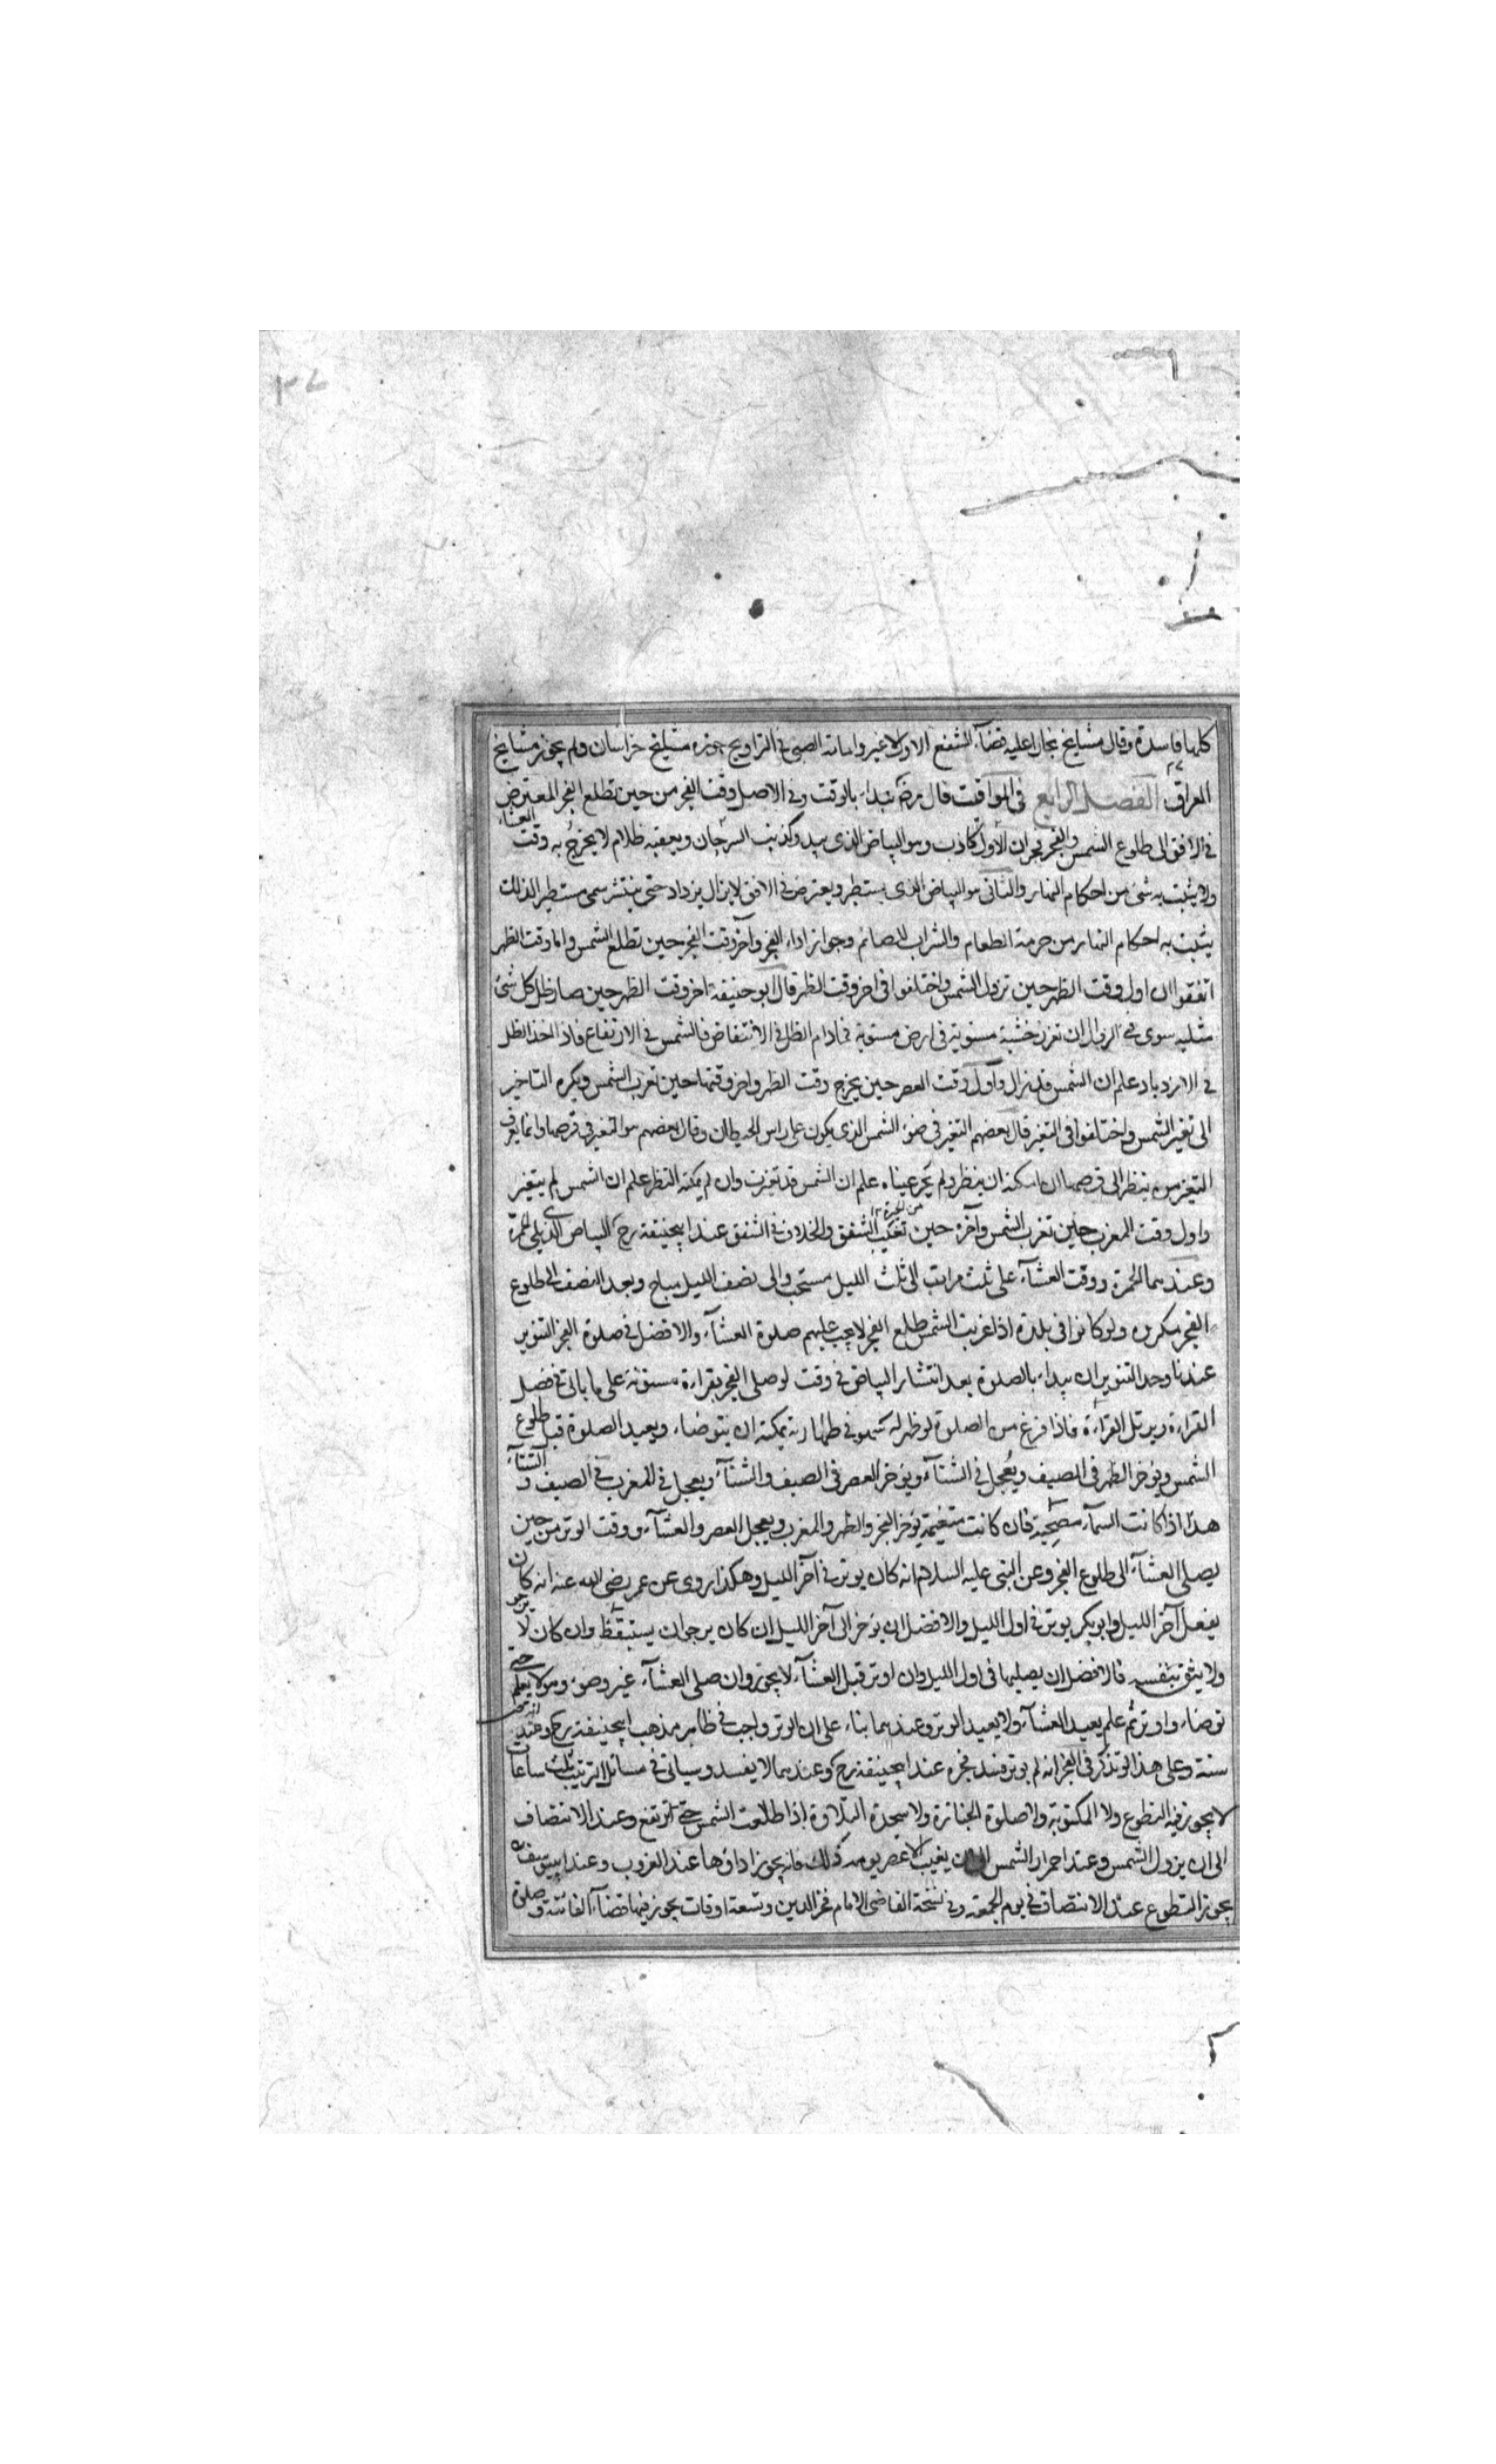 كلها فاسدة وقال مشايخ بخارا عليه قضاء الشفع الاول لا غير وامامة الصبى فى التراويح جوزه مشايخ خراسان ولم يجوز مشايخ
العراق الفصل الرابع فى المواقيت قال رضـ نبداء بالوقت وفى الاصل وقت الفجر من حين تطلع الفجر المعترض
فى الافق الى طلوع الشمس والفجر فجران الاول كاذب وهو البياض الذى يبدو كذنب السرحان ويعقبه ظلام لا يخرج به وقت العشاء
ولا يثبت به شئ من احكام النهار والثانى هو البياض الذى يستطير ويعترض فى الافق لا يزال يزداد حتى ينتشر سمى مستطيرا لذلك
يثبت به احكام النهار من حرمة الطعام والشراب للصائم وجواز اداء الفجر وآخر وقت الفجر حين تطلع الشمس واما وقت الظهر
اتفقوا ان اول وقت الظهر حين تزول الشمس واختلفوا فى اخر وقت الظهر قال ابو حنيفة اخر وقت الظهر حين صار ظل كل شئ
مثليه سوى فئ الزوال ان تغرز خشبة مستوية فى ارض مستوية فمادام الظل فى الانتقاض فالشمس فى الارتفاع فاذا اخذ الظل
فى الازدياد علم ان الشمس قد زال واول وقت العصر حين يخرج وقت الظهر واخر وقتها حين تغرب الشمس ويكره التاخير
الى تغير الشمس واختلفوا فى التغير قال بعضهم التغير فى ضوء الشمس الذى يكون على راس الحيطان وقال بعضهم هو التغير فى قرصها وانما يعرف
التغير من ينظر الى قرصها ان امكنه ان ينظر ولم يحر عيناه علم ان الشمس قد تغيرت وان لم يمكنه النظر علم ان الشمس لم يتغير
واول وقت المغرب حين تغرب الشمس وآخره حين تغيب الشفق والخلاف فى الشفق عند ابيحنيفة رح البياض الذى يلى الحمرة
وعندهما الحمرة ووقت العشاء على ثلث مراتب الى ثلث الليل مستحب والى نصف الليل مباح وبعد النصف الى طلوع
الفجر مكروه ولو كانوا فى بلدة اذا غربت الشمس طلع الفجر لا يجب عليهم صلوة العشاء والافضل فى صلوة الفجر التنوير
عندنا وحد التنوير ان يبداء بالصلوة بعد انتشار البياض فى وقت لو صلى الفجر بقراءة مسنونة على ما ياتى فى فصل
القراءة ويرتل القراءة فاذا فرغ من الصلوة لو ظهر له سهو فى طهارته يمكنه ان يتوضاء ويعيد الصلوة قبل طلوع
الشمس ويؤخر الظهر فى الصيف ويعجل فى الشتاء ويؤخر العصر فى الصيف والشتاء ويعجل فى المغرب فى الصيف و الشتاء
هذا اذا كانت السماء مصحية فان كانت متغيمة يؤخر الفجر والظهر والمغرب ويعجل العصر والعشاء ووقت الوتر من حين
يصلى العشاء الى طلوع الفجر وعن النبى عليه السلام انه كان يوتر فى آخر الليل وهكذا روى عن عمر رضى الله عنه انه كان
يفعل آخر الليل وابو بكر يوتر فى اول الليل والافضل ان يؤخر الى آخر الليل ان كان يرجو ان يستيقظ وان كان لا يرجو
ولا يثق بنفسه فالافضل ان يصليها فى اول الليل وان اوتر قبل العشاء لا يجوز وان صلى العشاء غير وضوء وهو لا يعلم حتى
توضاء واوتر ثم علم يعيد العشاء ولا يعيد الوتر وعندهما بناء على ان الوتر واجب فى ظاهر مذهب ابيحنيفة رح وعندهما
سنة وعلى هذا لو تذكر فى الفجر انه لم يوتر فسد فجره عند ابيحنيفة رح وعندهما لا يفسد وسياتى فى مسائل الترتيب ثلث ساعات
لا يجوز فيه التطوع ولا المكتوبة ولا صلوة الجنازة ولا سجدة التلاوة اذا طلعت الشمس حتى ترتفع وعند الانتصاف
الى ان يزول الشمس وعند احمرار الشمس الى ان يغيب الا عصر يومه ذلك فانه يجوز اداؤها عند الغروب وعند ابييوسف
يجوز التطوع عند الانتصاف فى يوم الجمعة وفى نسخة القاضى الامام فخر الدين وتسعة اوقات يجوز فيها قضاء الفائتة و صلوة